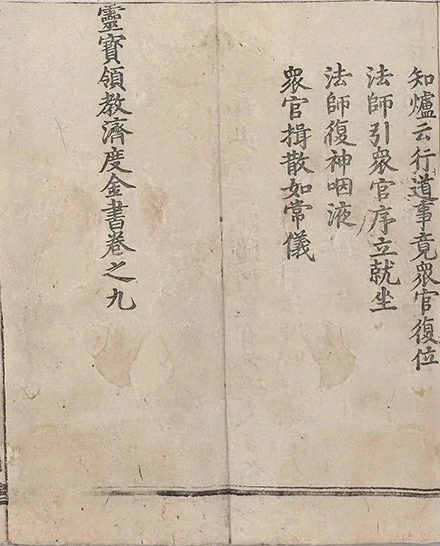 知爐云行道事竟衆官復位
法師引衆官序立就坐
法師復神咽液
衆官揖散如常儀
靈寳領教濟度金書卷之九